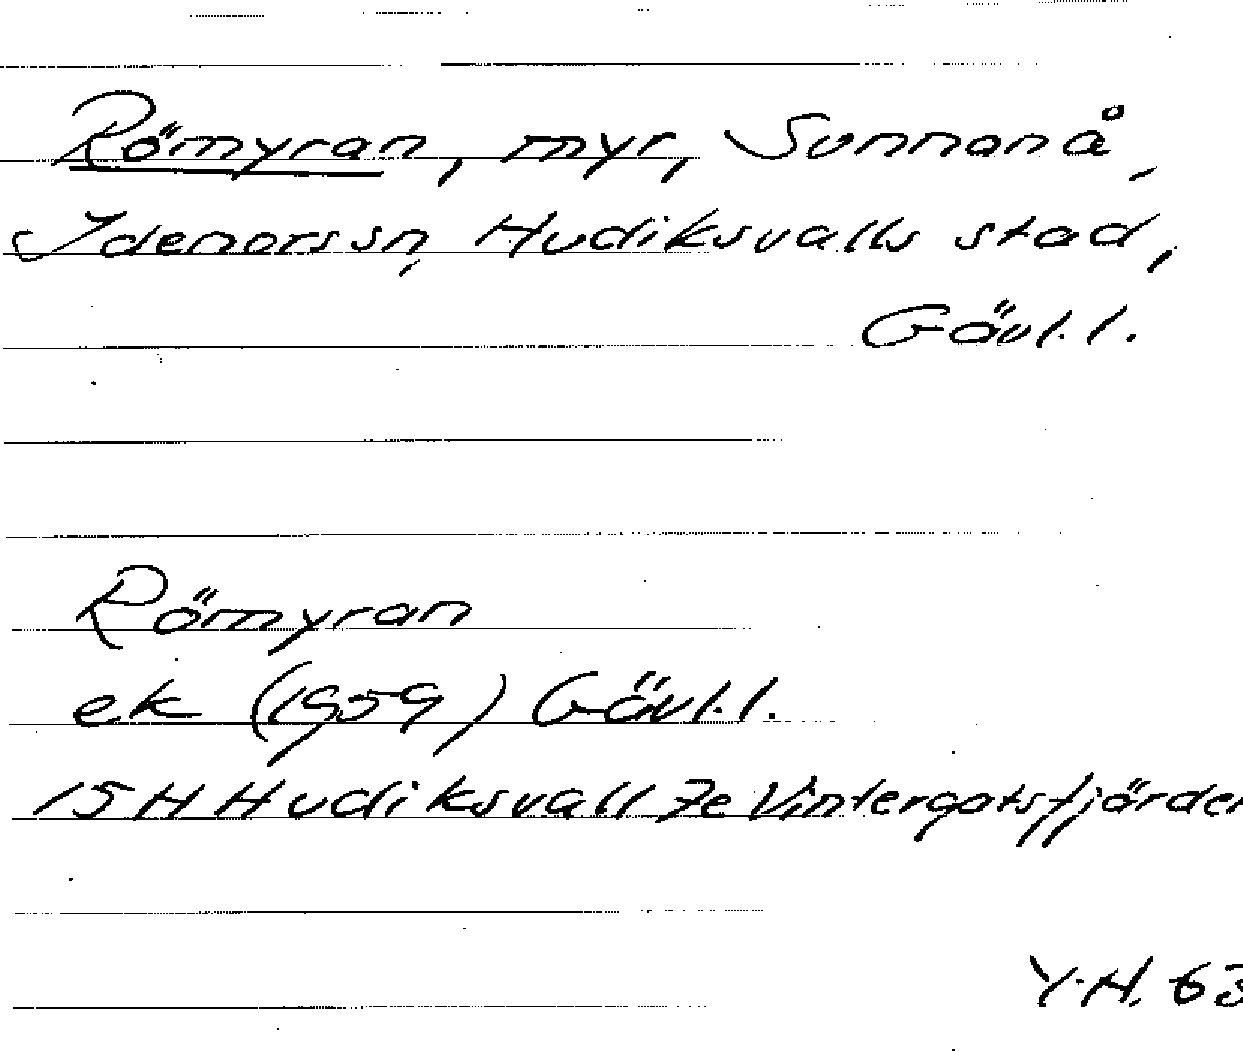 Römyran, myr, Sunnanå,
Idenorssn, Hudiksvalls stad,
Gävl.l.
Römyran
ek (1959) Gävl.l.
15H Hudiksvall 7e Vintergatsfjärden
Y.H. 63